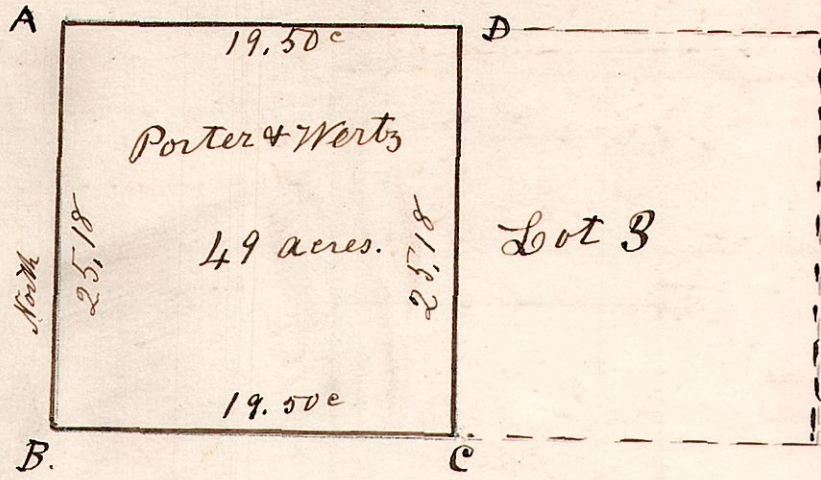 A
D
19.50c
Porter & Wertz
North
25,18
49 acres.
25,18
Lot 3
19.50c
B.
C